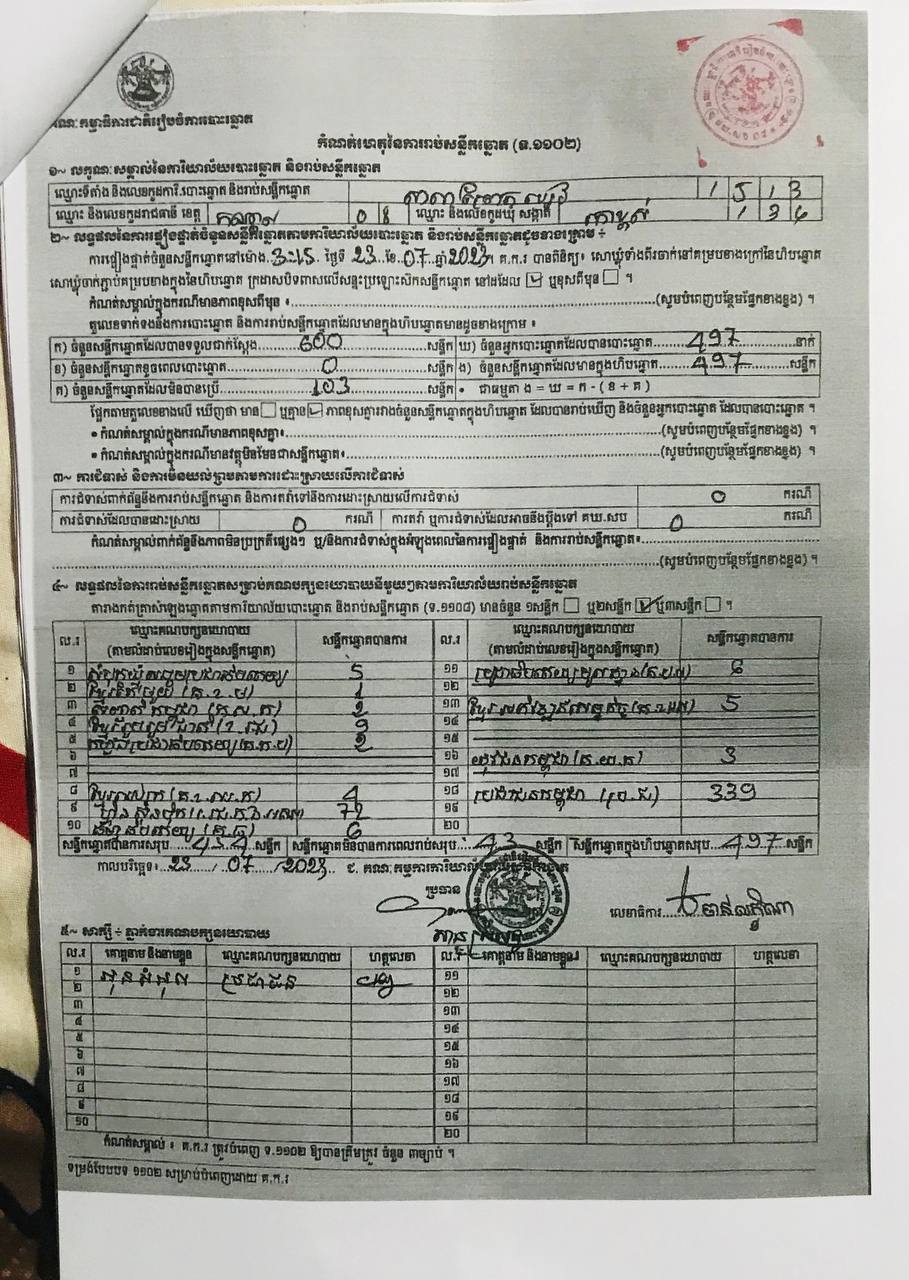 គណៈកម្មាធិការជាតិរៀបចំការបោះឆ្នោត
កំណត់ហេតុនៃការរាប់សន្លឹកឆ្នោត (ទ.១១០២)
១~ លក្ខណៈសម្គាល់នៃការិយាល័យបោះឆ្នោត និងរាប់សន្លឹកឆ្នោត
ឈ្មោះទីតាំង និងលេខកូដការិ.បោះឆ្នោត និងរាប់សន្លឹកឆ្នោត
ឈ្មោះ និងលេខកូដរាជធានី ខេត្ត កណ្តាល 0 8 ឈ្មោះ និងលេខកូដឃុំ សង្កាត់
២~ លទ្ធផលនៃការផ្ទៀងផ្ទាត់ចំនួនសន្លឹកឆ្នោតតាមការិយាល័យបោះឆ្នោត និងរាប់សន្លឹកឆ្នោតដូចខាងក្រោម ÷
ការផ្ទៀងផ្ទាត់ចំនួនសន្លឹកឆ្នោតនៅម៉ោង 3:15 ថ្ងៃទី 23 ខែ 07 ឆ្នាំ 2023 គ.ក.រ បានពិនិត្យ៖ សោឃ្មុំទាំងពីរចាក់នៅគម្របខាងក្រៅនៃហិបឆ្នោត
សោឃ្មុំចាក់ភ្ជាប់គម្របខាងក្នុងនៃហិបឆ្នោត ក្រដាសបិទពាសលើសន្ទះប្រឡោះសិកសន្លឹកឆ្នោត នៅដដែល ឬខុសពីមុន ។
កំណត់សម្គាល់ក្នុងករណីមានភាពខុសពីមុន ៖ (សូមបំពេញបន្ថែមផ្នែកខាងខ្នង) ។
តួលេខទាក់ទងនឹងការបោះឆ្នោត និងការរាប់សន្លឹកឆ្នោតដែលមានក្នុងហិបឆ្នោតមានដូចខាងក្រោម ៖
ក) ចំនួនសន្លឹកឆ្នោតដែលបានទទួលជាក់ស្តែង 600 សន្លឹក ឃ) ចំនួនអ្នកបោះឆ្នោតដែលបានបោះឆ្នោត 497 នាក់
ខ) ចំនួនសន្លឹកឆ្នោតខូចពេលបោះឆ្នោត 0 សន្លឹក ង) ចំនួនសន្លឹកឆ្នោតដែលមានក្នុងហិបឆ្នោត 497 សន្លឹក
គ) ចំនួនសន្លឹកឆ្នោតដែលមិនបានប្រើ 103 សន្លឹក • ជាធម្មតា ង = ឃ = ក - (ខ + គ)
ផ្អែកតាមតួលេខខាងលើ ឃើញថា មាន ឬគ្មាន ភាពខុសគ្នារវាងចំនួនសន្លឹកឆ្នោតក្នុងហិបឆ្នោត ដែលបានរាប់ឃើញ និងចំនួនអ្នកបោះឆ្នោត ដែលបានបោះឆ្នោត ។
• កំណត់សម្គាល់ក្នុងករណីមានភាពខុសគ្នា៖ (សូមបំពេញបន្ថែមផ្នែកខាងខ្នង) ។
• កំណត់សម្គាល់ក្នុងករណីមានវត្ថុមិនមែនជាសន្លឹកឆ្នោត៖ (សូមបំពេញបន្ថែមផ្នែកខាងខ្នង) ។
៣~ ការជំទាស់ និងការមិនយល់ព្រមតាមការដោះស្រាយលើការជំទាស់
ការជំទាស់ពាក់ព័ន្ធនឹងការរាប់សន្លឹកឆ្នោត និងការតវ៉ាទៅនឹងការដោះស្រាយលើការជំទាស់ 0 ករណី
ការជំទាស់ដែលបានដោះស្រាយ 0 ករណី ការតវ៉ា ឬការជំទាស់ដែលអាចនឹងប្តឹងទៅ គឃ.សប 0 ករណី
កំណត់សម្គាល់ពាក់ព័ន្ធនឹងភាពមិនប្រក្រតីផ្សេងៗ ឬ/និងការជំទាស់ក្នុងអំឡុងពេលនៃការផ្ទៀងផ្ទាត់ និងការរាប់សន្លឹកឆ្នោត៖
(សូមបំពេញបន្ថែមផ្នែកខាងខ្នង) ។
៤~ លទ្ធផលនៃការរាប់សន្លឹកឆ្នោតសម្រាប់គណបក្សនយោបាយនីមួយៗតាមការិយាល័យរាប់សន្លឹកឆ្នោត
តារាងកត់ត្រាសំឡេងឆ្នោតតាមការិយាល័យបោះឆ្នោត និងរាប់សន្លឹកឆ្នោត (ទ.១១០៨) មានចំនួន ១សន្លឹក ឬ២សន្លឹក ឬ៣សន្លឹក ។
ល.រ ឈ្មោះគណបក្សនយោបាយ (តាមលំដាប់លេខរៀងក្នុងសន្លឹកឆ្នោត) សន្លឹកឆ្នោតបានការ ល.រ ឈ្មោះគណបក្សនយោបាយ (តាមលំដាប់លេខរៀងក្នុងសន្លឹកឆ្នោត) សន្លឹកឆ្នោតបានការ
១ 5 ១១ 6
២ 1 ១២
៣ ១៣ 5
៤ ១៤
៥ ១៥
៦ ១៦ យុវជនកម្ពុជា (គ.យ.ក) 3
៧ ១៧
៨ 4 ១៨ ប្រជាជនកម្ពុជា 339
៩ 72 ១៩
១០ 6 ២០
សន្លឹកឆ្នោតបានការសរុប 454 សន្លឹក សន្លឹកឆ្នោតមិនបានការពេលរាប់សរុប 43 សន្លឹក សន្លឹកឆ្នោតក្នុងហិបឆ្នោតសរុប 497 សន្លឹក
កាលបរិច្ឆេទ៖ 23 / 07 / 2023 ជ. គណៈកម្មការការិយាល័យបោះឆ្នោត និងរាប់សន្លឹកឆ្នោត
ប្រធាន
លេខាធិការ
៥~ សាក្សី ÷ ភ្នាក់ងារគណបក្សនយោបាយ
ល.រ គោត្តនាម និងនាមខ្លួន ឈ្មោះគណបក្សនយោបាយ ហត្ថលេខា ល.រ គោត្តនាម និងនាមខ្លួន ឈ្មោះគណបក្សនយោបាយ ហត្ថលេខា
១ ប្រជាជន ១១
២ ១២
៣ ១៣
៤ ១៤
៥ ១៥
៦ ១៦
៧ ១៧
៨ ១៨
៩ ១៩
១០ ២០
កំណត់សម្គាល់ ៖ គ.ក.រ ត្រូវបំពេញ ទ.១១០២ ឱ្យបានត្រឹមត្រូវ ចំនួន ៣ច្បាប់ ។
ទម្រង់បែបបទ ១១០២ សម្រាប់បំពេញដោយ គ.ក.រ